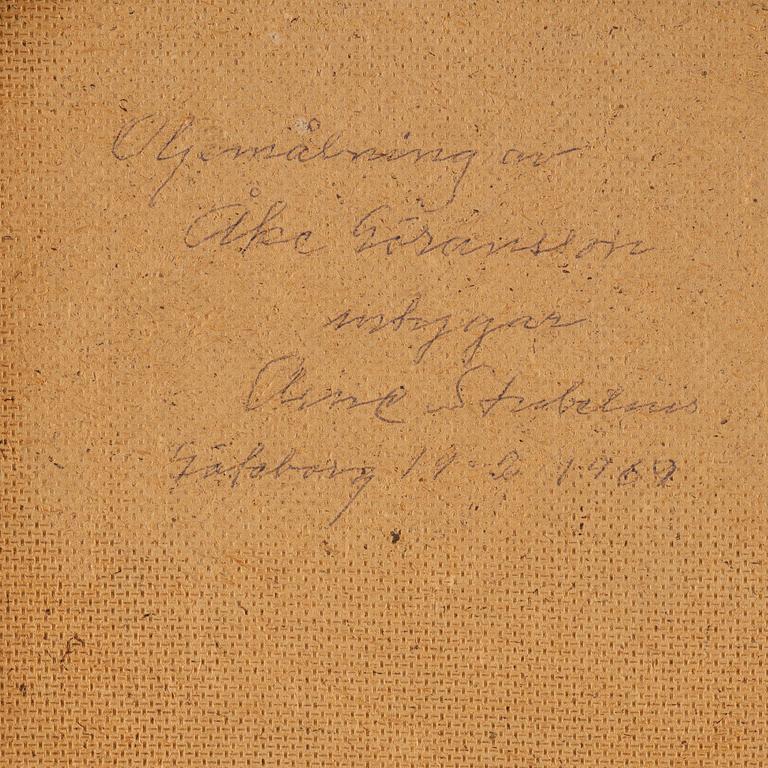 Oljemålning av
Åke Göransson
intygar
Arne Stubelius
Göteborg 19-2 1969